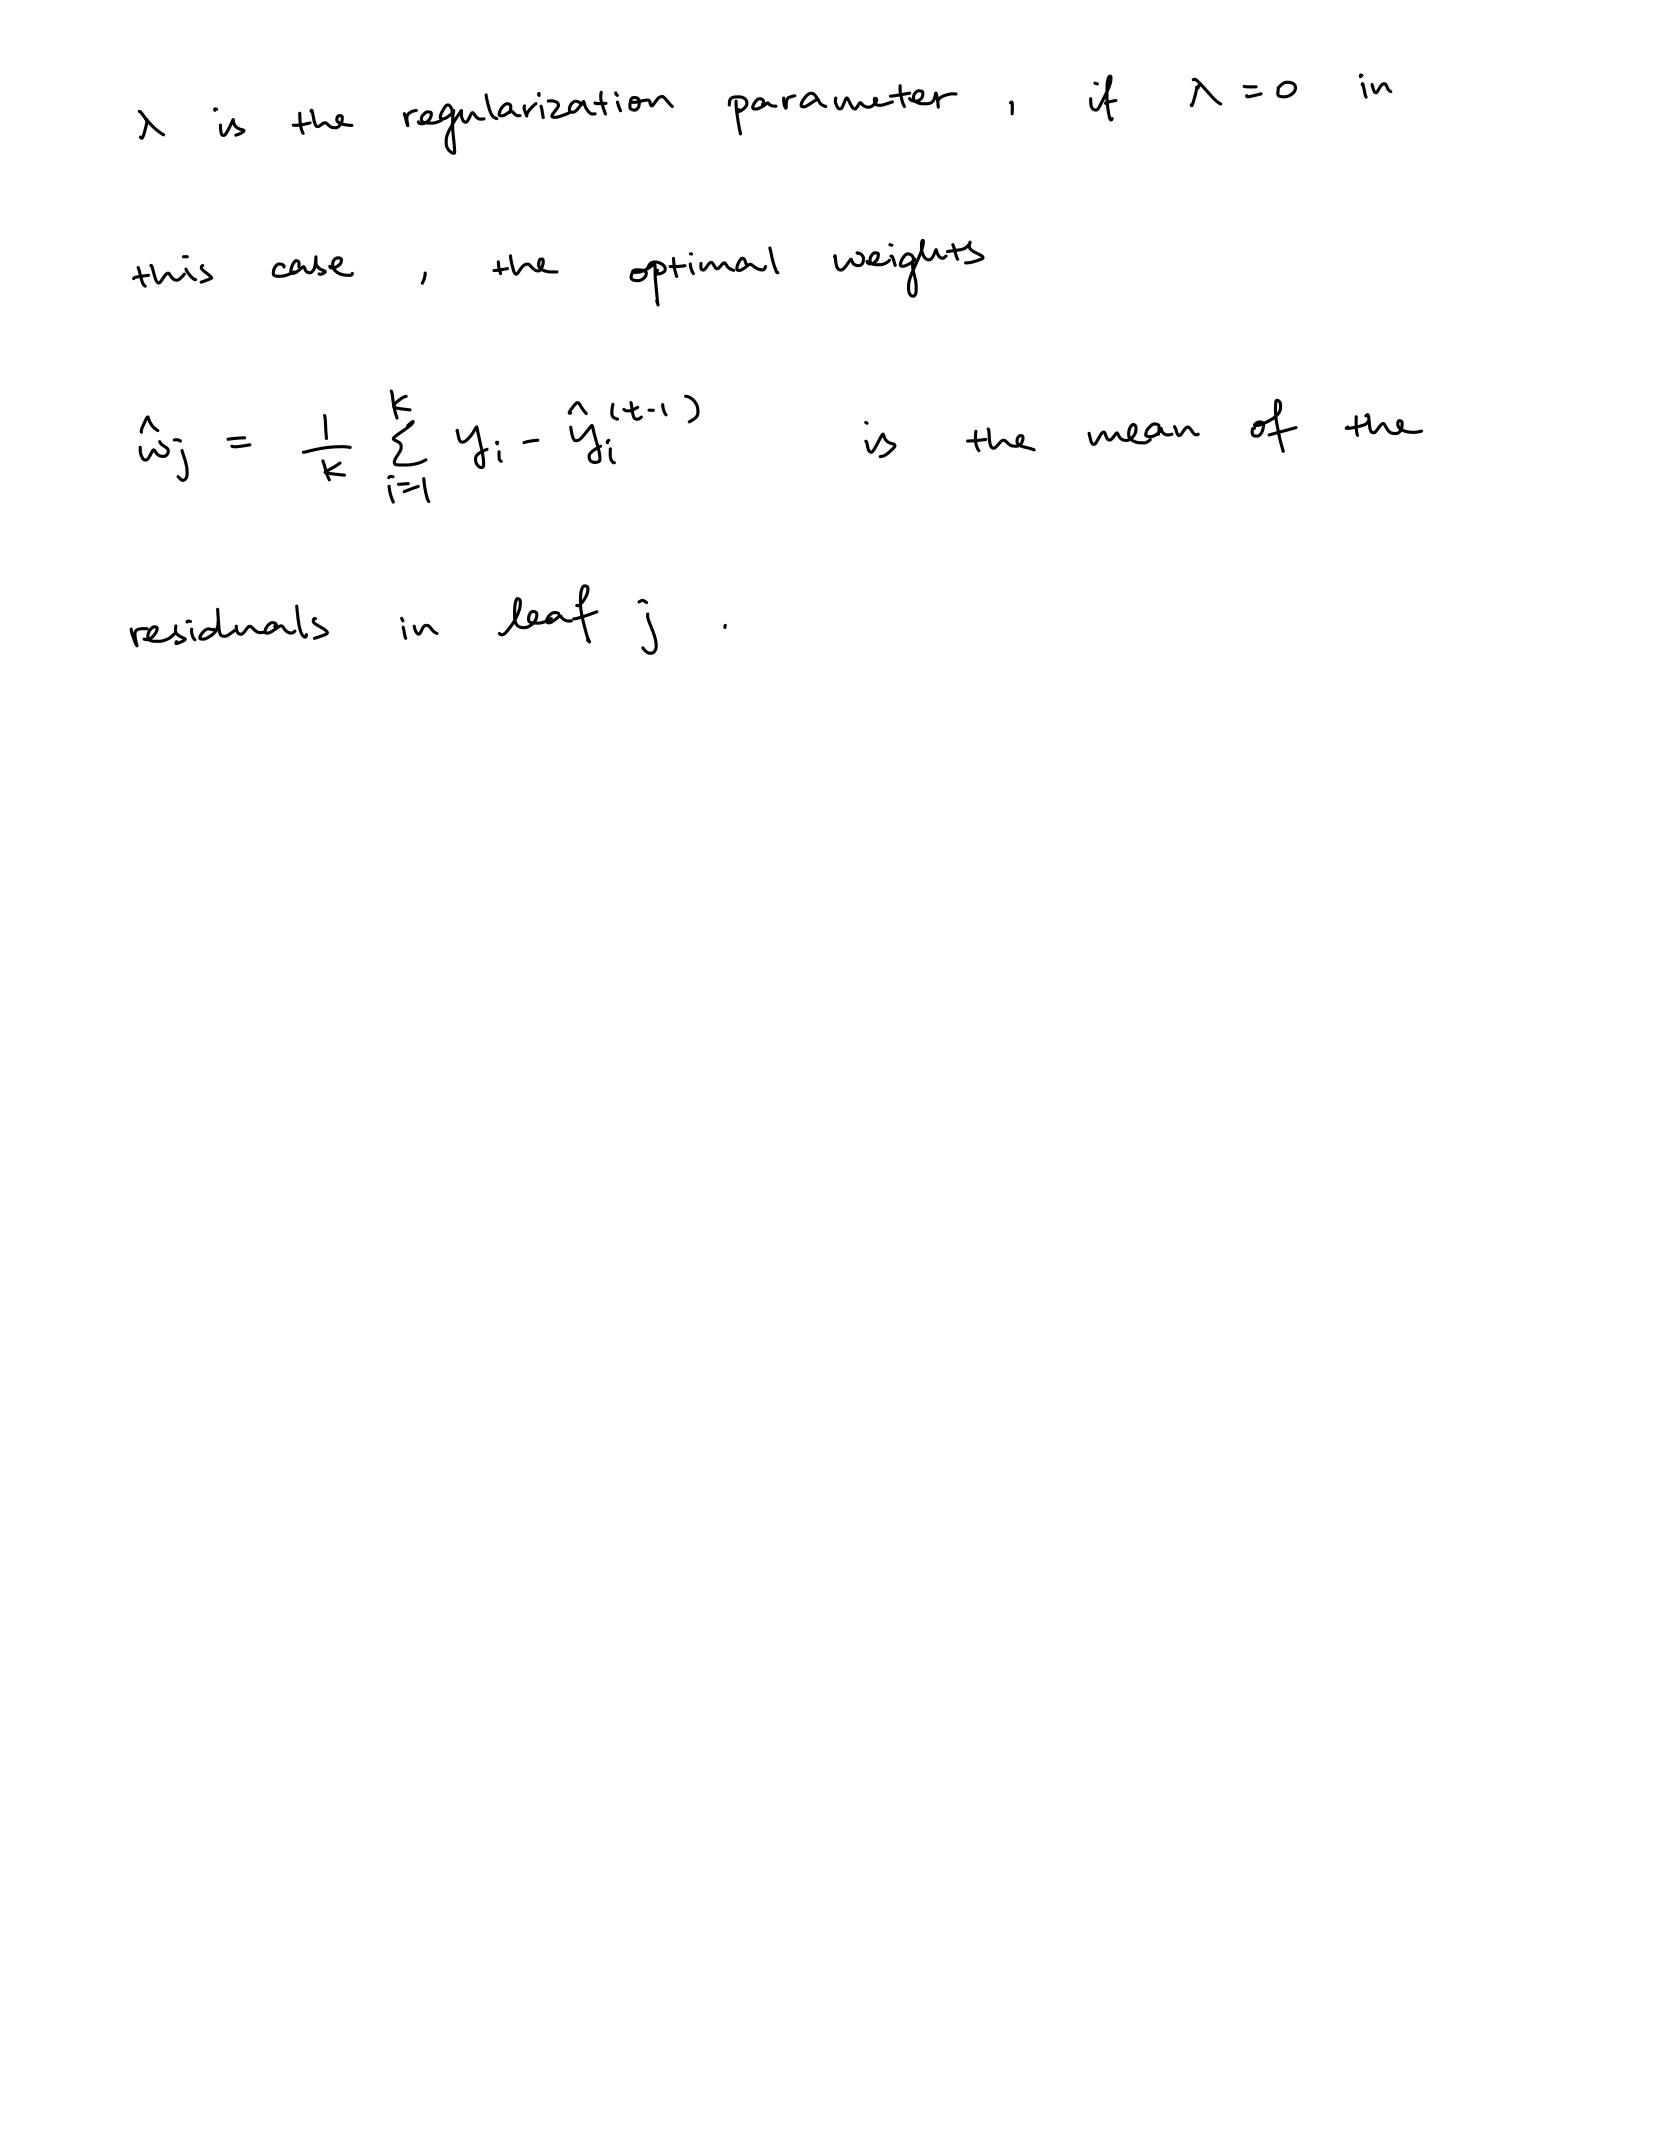 λ is the regularization parameter, if λ = 0 in
this case, the optimal weights
ŵ_j = 1/K ∑_{i=1}^{K} y_i - ŷ_i^{(t-1)} is the mean of the
residuals in leaf j.